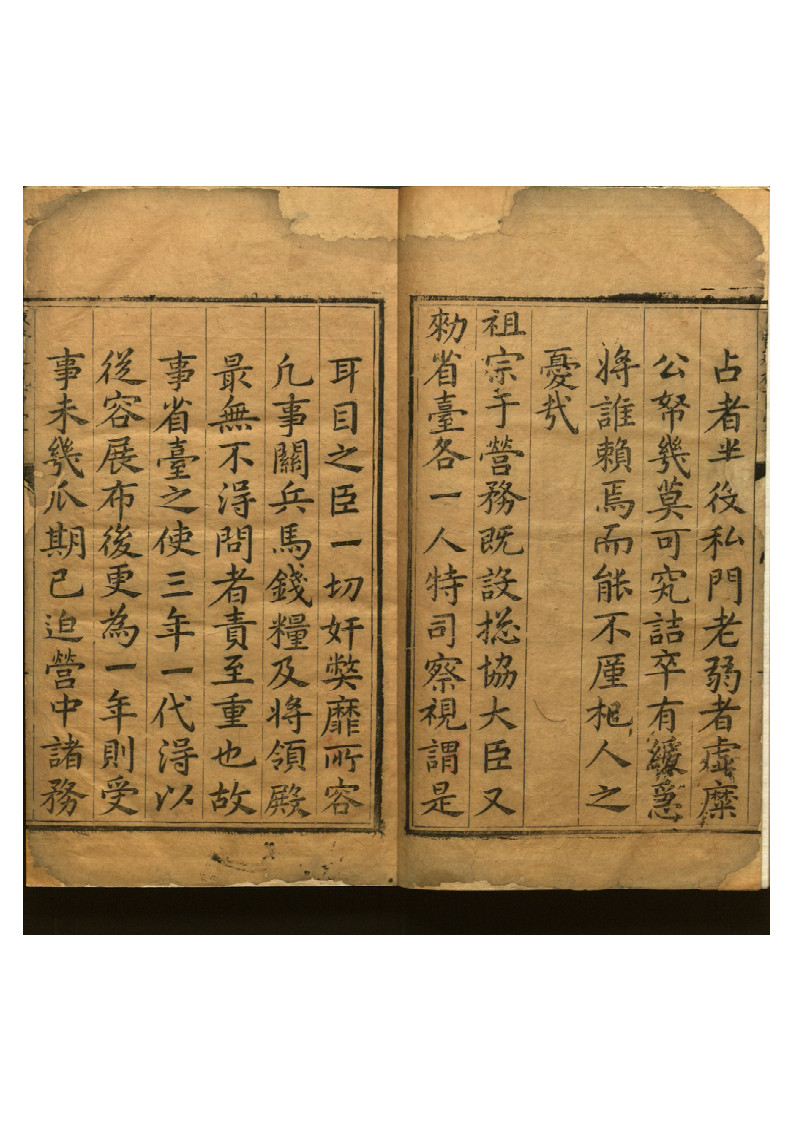 占者半役私門老弱者虛糜
公帑幾莫可究詰卒有緩急
將誰賴焉而能不厪杞人之
憂哉
祖宗于營務既設捴協大臣又
勑省臺各一人特司察視謂是
耳目之臣一切奸獘靡所容
凢事關兵馬錢糧及將領殿
最無不淂問者責至重也故
事省臺之使三年一代淂以
從容展布後更為一年則受
事未幾瓜期已迫營中諸務